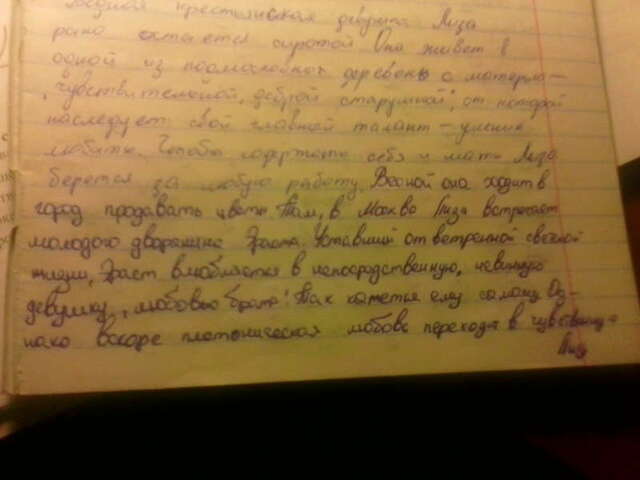 бедная крестьянская девушка Лиза
рано остаётся сиротой. Она живёт в
одной из подмосковных деревень с матерью —
"чувствительной, доброй старушкой", от которой
наследует свой главный талант — умение
любить. Чтобы содержать себя и мать Лиза
берется за любую работу. Весной она ходит в
город продавать цветы. Там, в Москве Лиза встречает
молодого дворянина Эраста. Уставший от ветренной светской
жизни, Эраст влюбляется в непосредственную, невинную
девушку, "любовью брата". Так кажется ему самому. Од-
нако вскоре платоническая любовь переходит в
Лиз